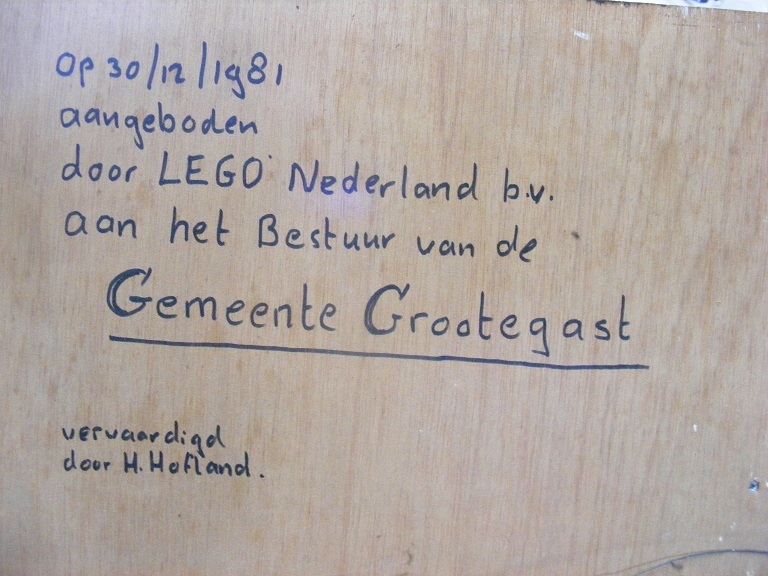 Op 30/12/1981
aangeboden
door LEGO Nederland b.v.
aan het Bestuur van de
Gemeente Grootegast
vervaardigd
door H. Hofland.